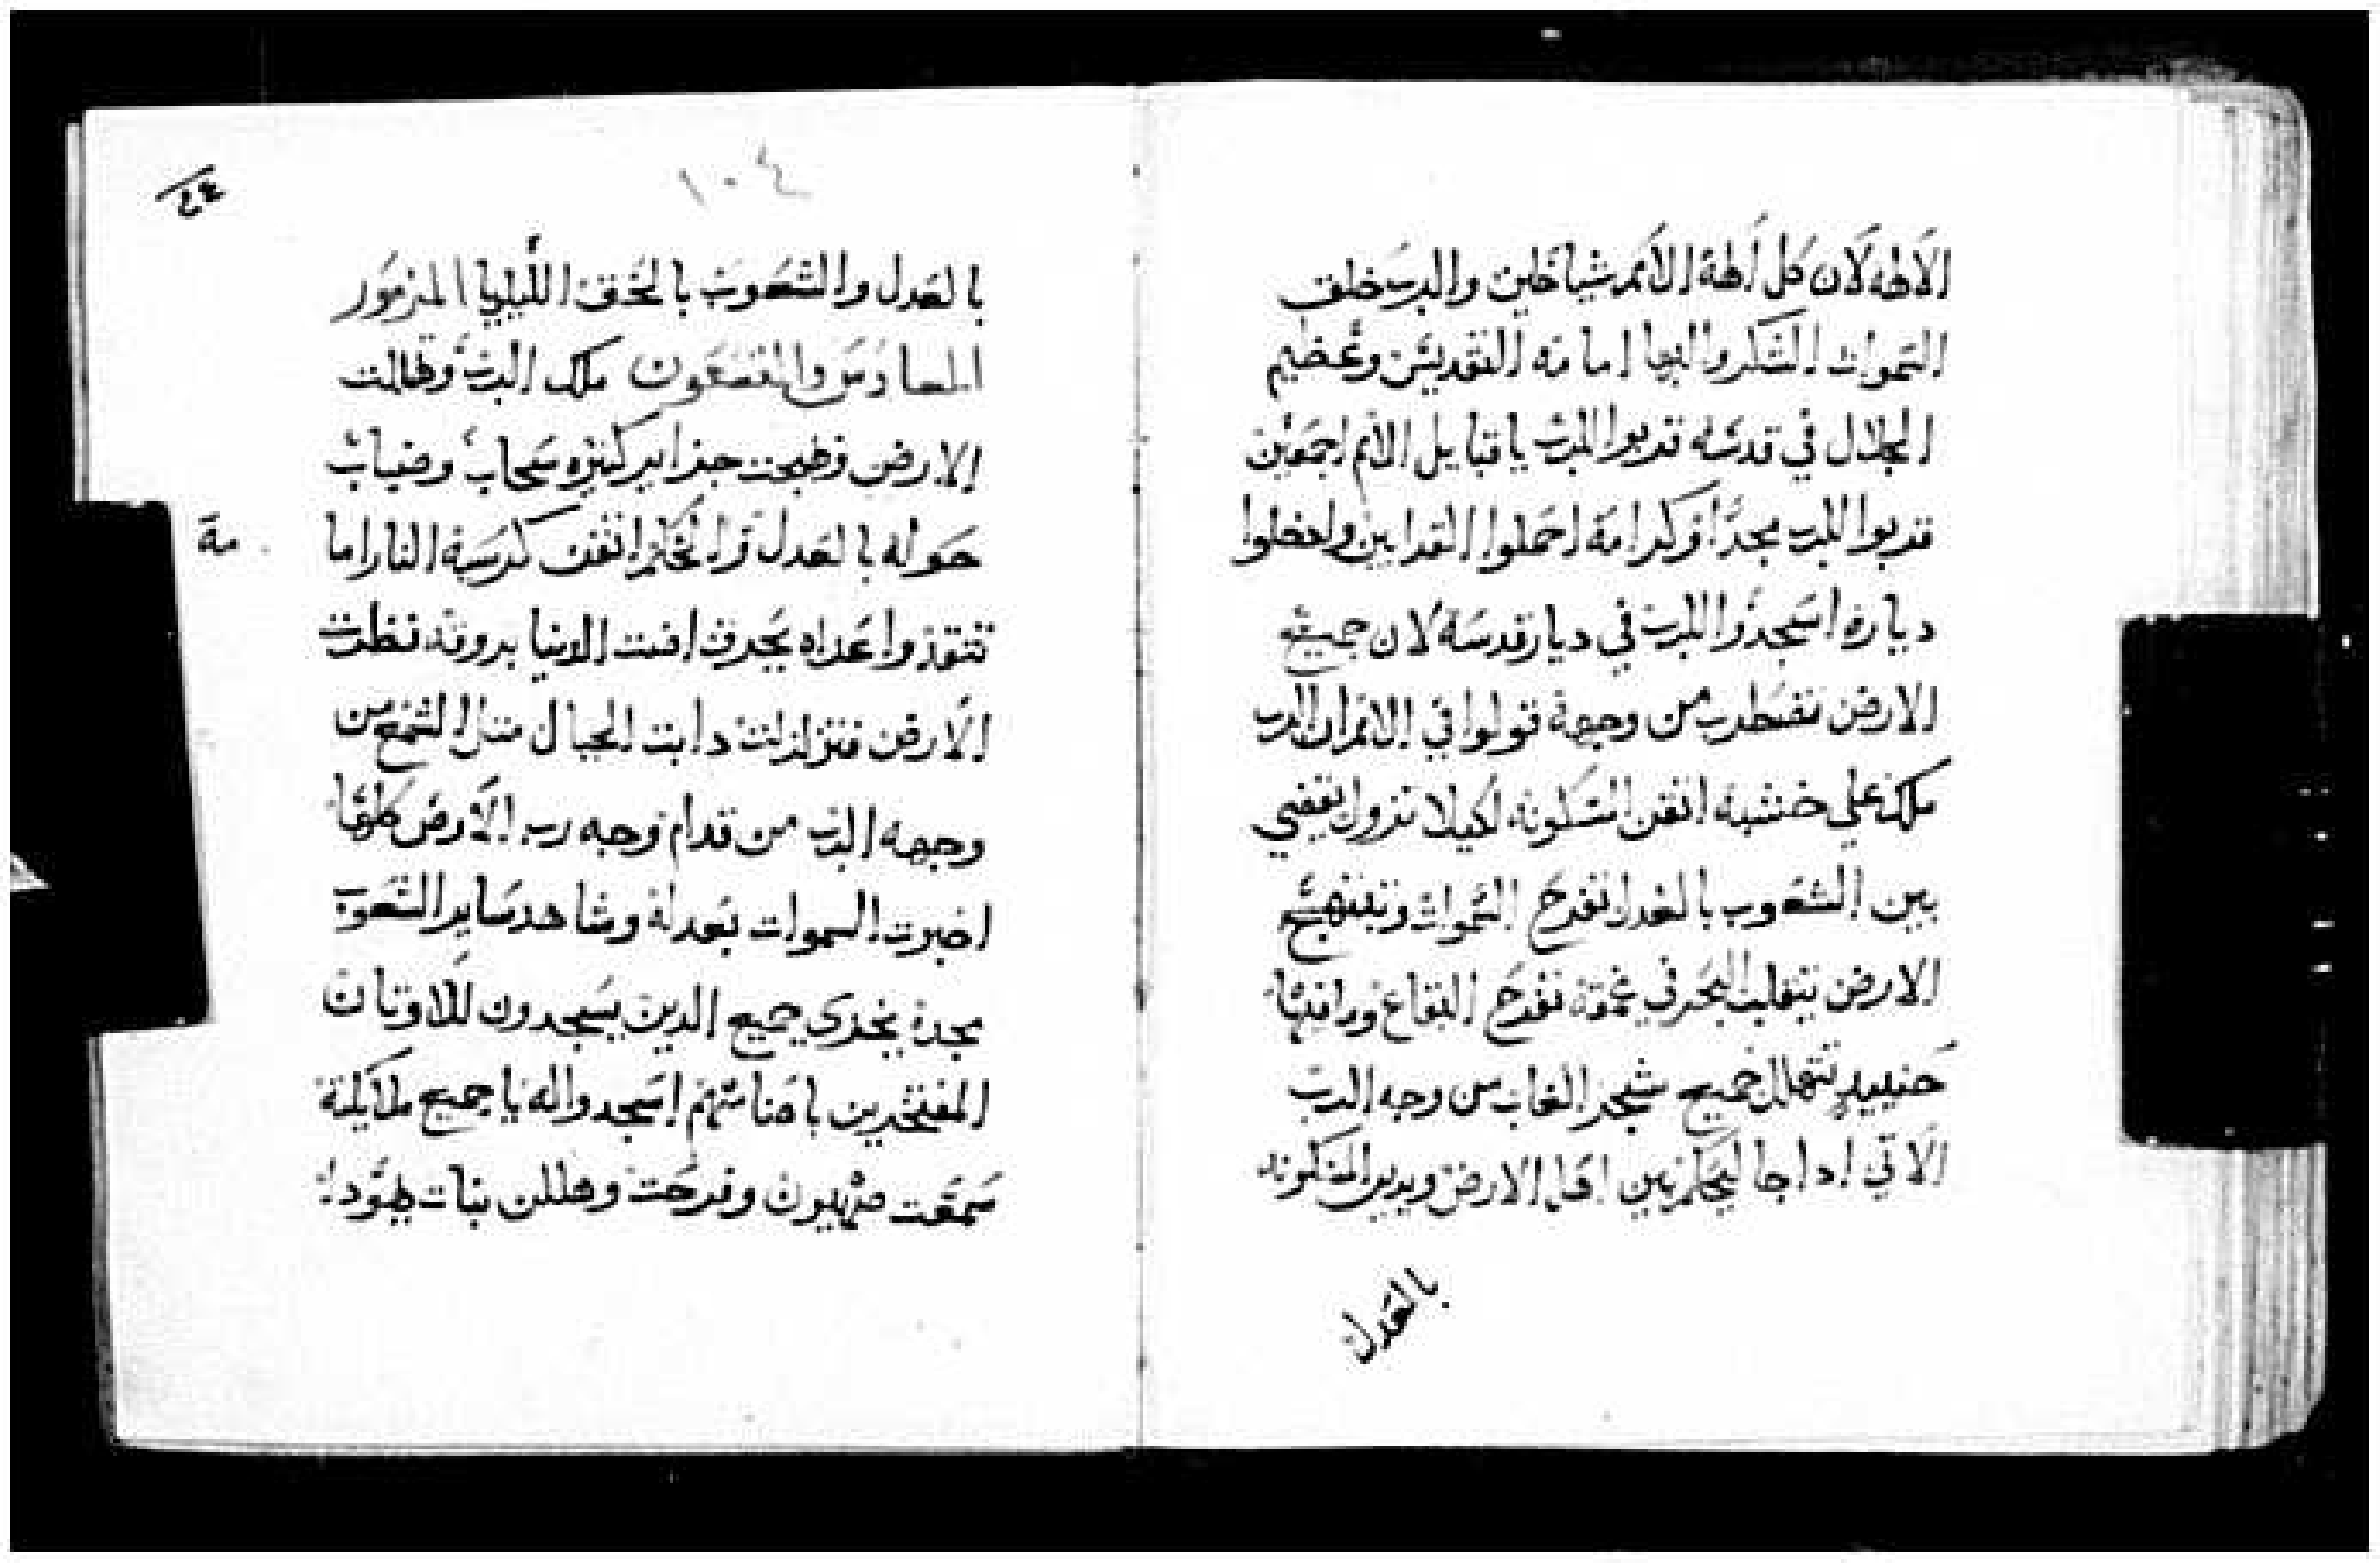 الالهه لان كل الهة الامم شياطين والرب خلق
السموات الشكر والبها امامه التقديس وعضيم
الجلال في قدسه قدموا للرب يا قبايل الامم اجمعين
قدموا للرب مجدا وكرامة احملوا القرابين وادخلوا
دياره اسجدوا للرب في ديار قدسه لان جميع
الارض تضطرب من وجهه قولوا في الامم ان الرب
ملك على خشبه اتقن المسكونه لكيلا تزول يقضي
بين الشعوب بالعدل تفرح السموات وتبتهج
الارض يتقلب البحر في عمقه تفرح البقاع ومافيها
حنييد تتهلل جميع شجر الغاب من وجه الرب
الاتي اداجا ليحكم بين اهل الارض ويدين المسكونه
بالعدل
١٠٤
بالعدل والشعوب بالحق الليلويا المزمور
السادس والتسعون ملك الرب وهللت
الارض وفرحت جزاير كثيره سحاب وضباب
حوله بالعدل والحكم اتقن كرسيه النار اما
مة
تتقد واعداه يحرق افنت الدنيا بروقه نظرت
الارض فتزلزلت دابت الجبال مثل الشمع من
وجهه الرب من قدام وجه رب الارض كلها
اخبرت السموات بعدله وشاهد ساير الشعوب
مجده يخزى جميع الدين يسجدون للاوتان
المفتخرين باصنامهم اسجدوا له يا جميع ملايكته
سمعت صهيون وفرحت وهللن بنات يهودا